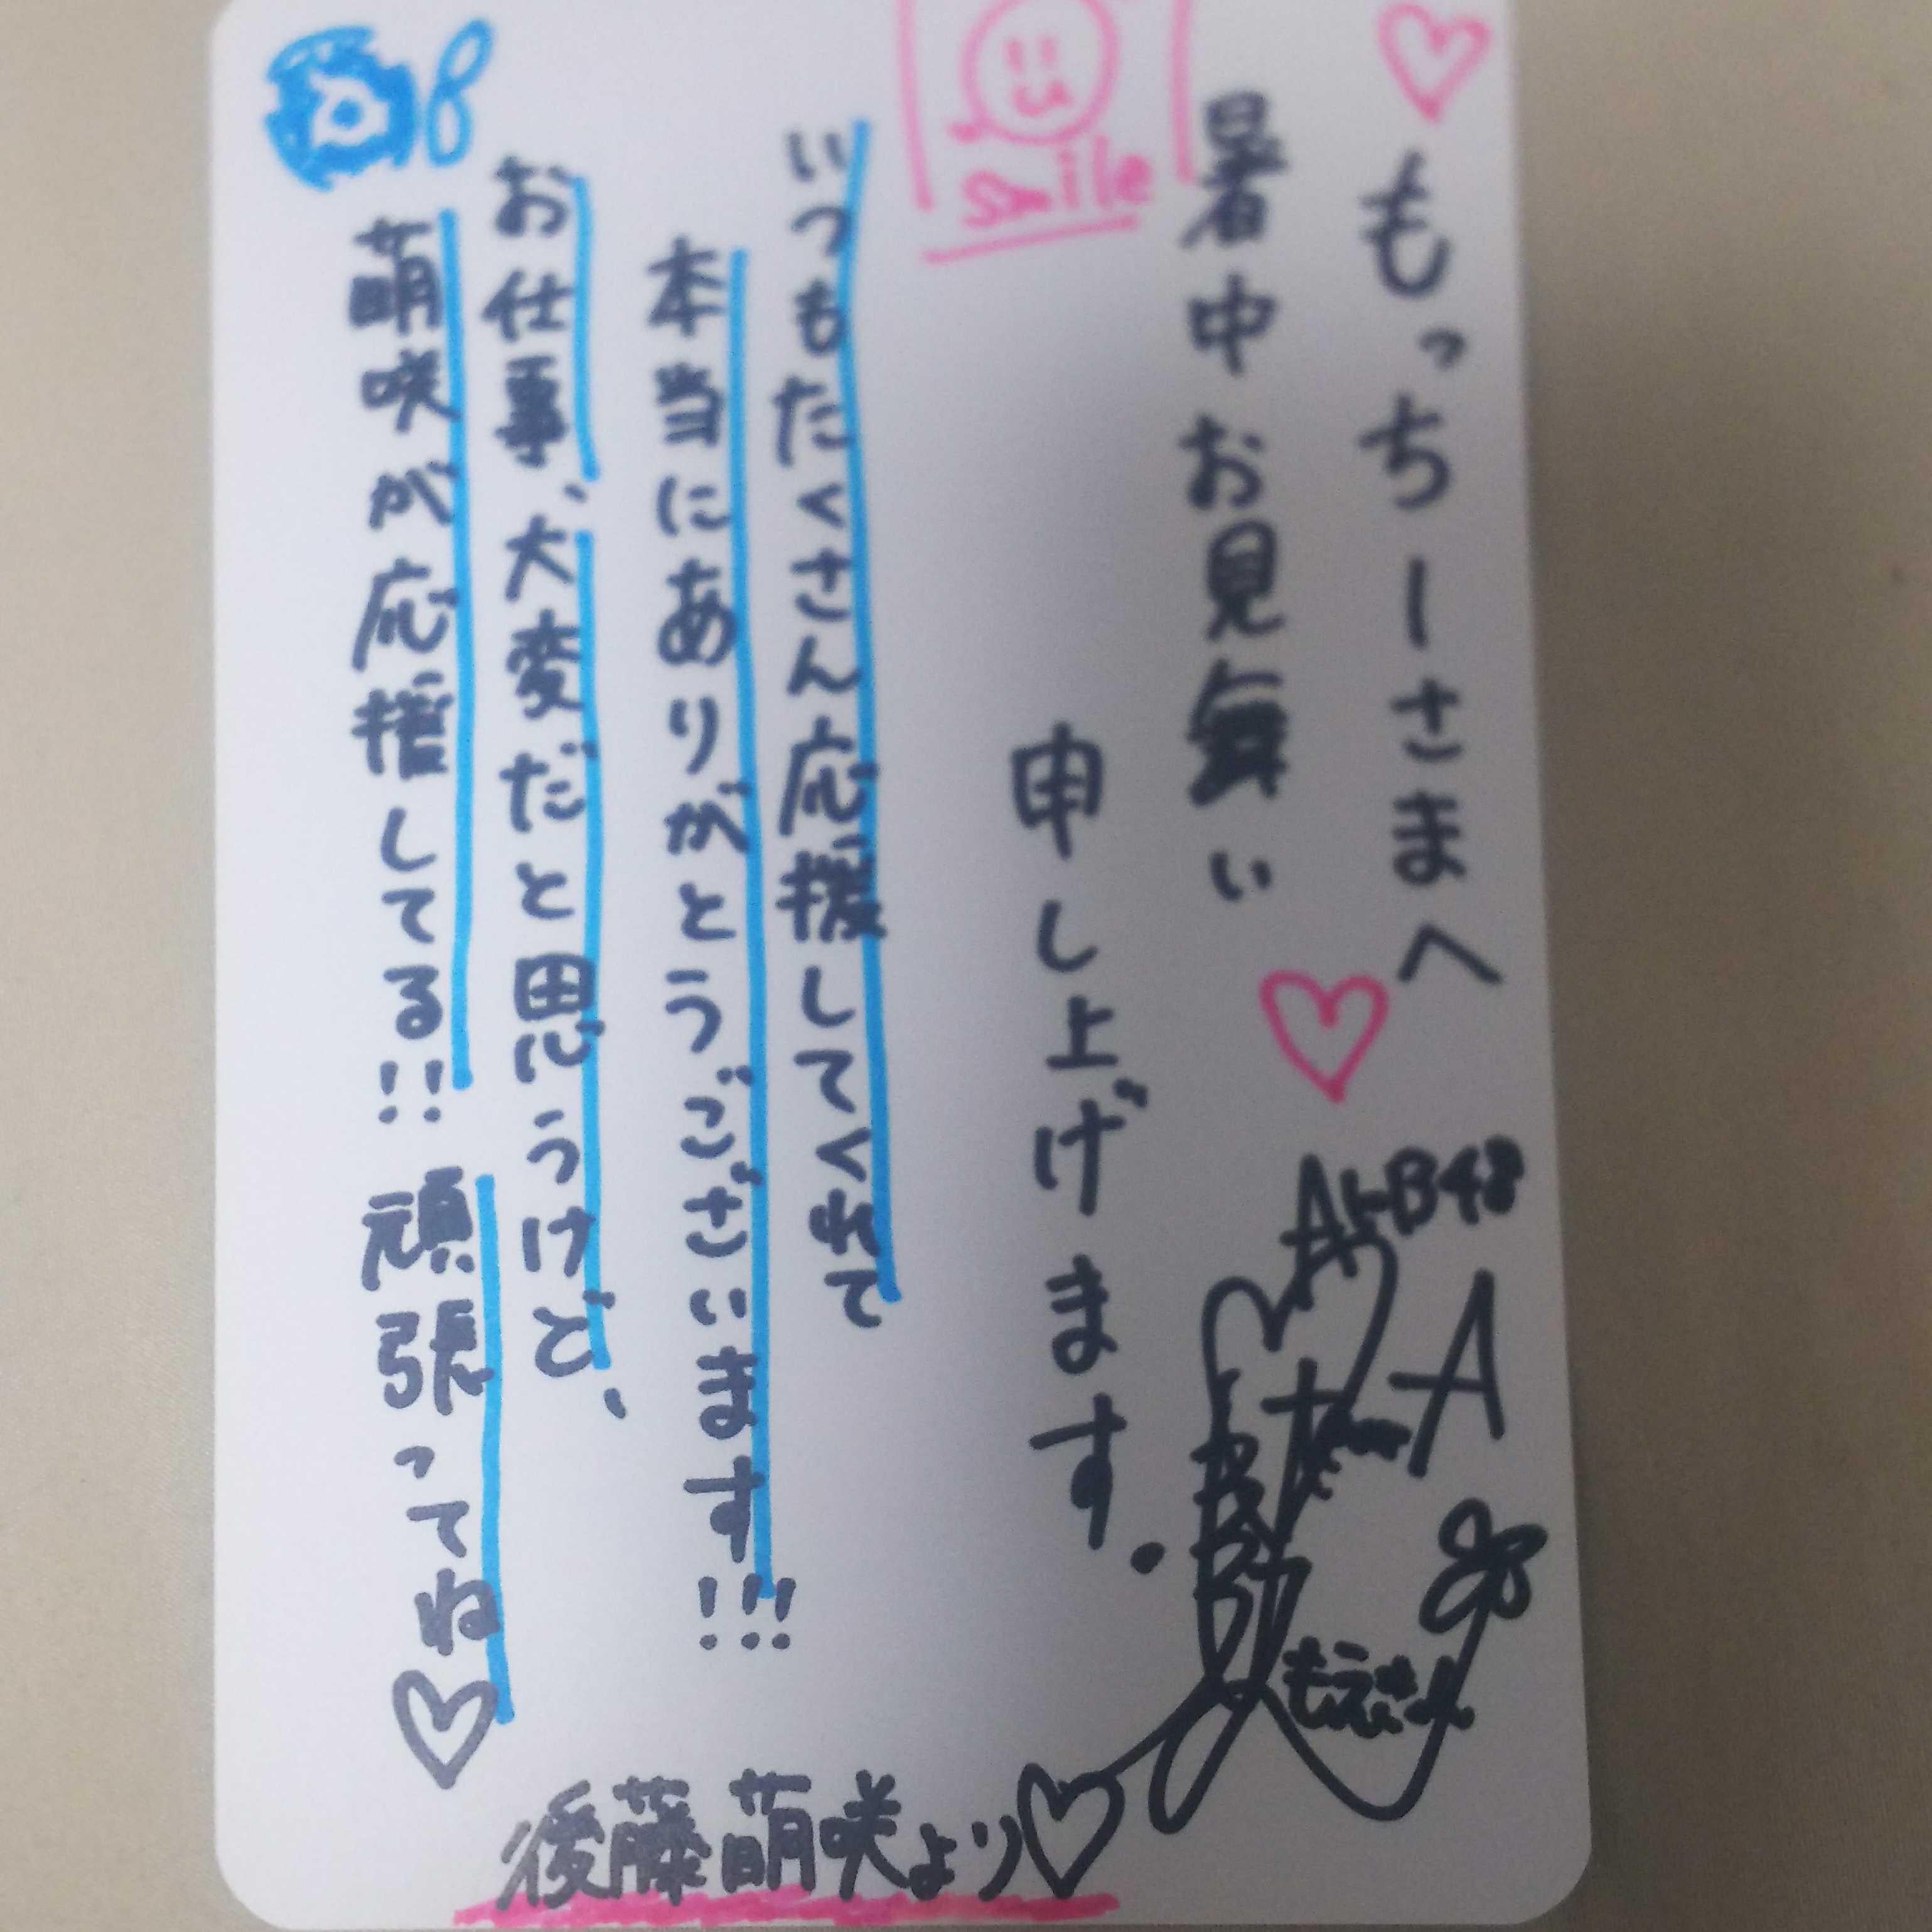 もっちーさまへ
暑中お見舞い
申し上げます.
smile
いつもたくさん応援してくれて
本当にありがとうございます!!!
お仕事、大変だと思うけど、
萌咲が応援してる!!頑張ってね
AKB48
Team A
もえきゅん
後藤萌咲より